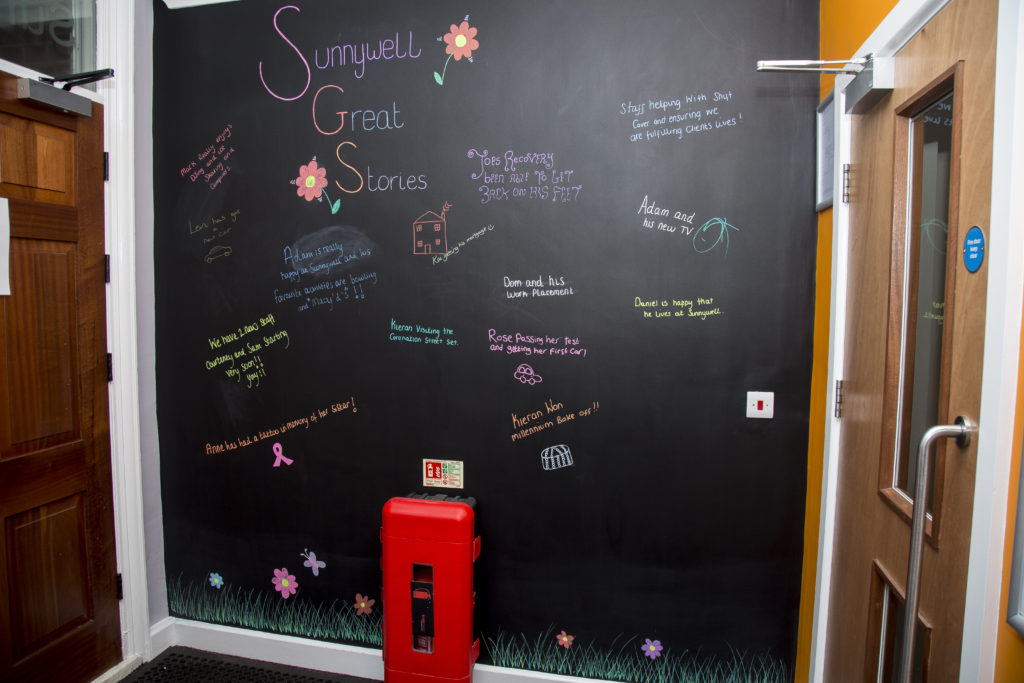 Sunnywell
Great
Stories
Staff helping with Shift
Cover and ensuring we
are fulfilling Clients lives!
Mark Really enjoys
Joes Recovery
been able to get
Back on his feet
Levi has got
a new
Car
Adam and
his new TV
Adam is really
happy at Sunnywell and his
favourite activities are bowling
and "Macy'd'S"!!
his mortgage
Dom and his
Work Placement
Daniel is happy that
he lives at Sunnywell..
We have 2 new staff
Courteney and Sam Starting
very soon!!
yay!!
Kieran Visiting the
Coronation Street Set.
Rose Passing her Test
and getting her First Car!
Kieran Won
Millennium Bake off!!
Anne has had a tattoo in memory of her Sister!
Fire door
keep
shut